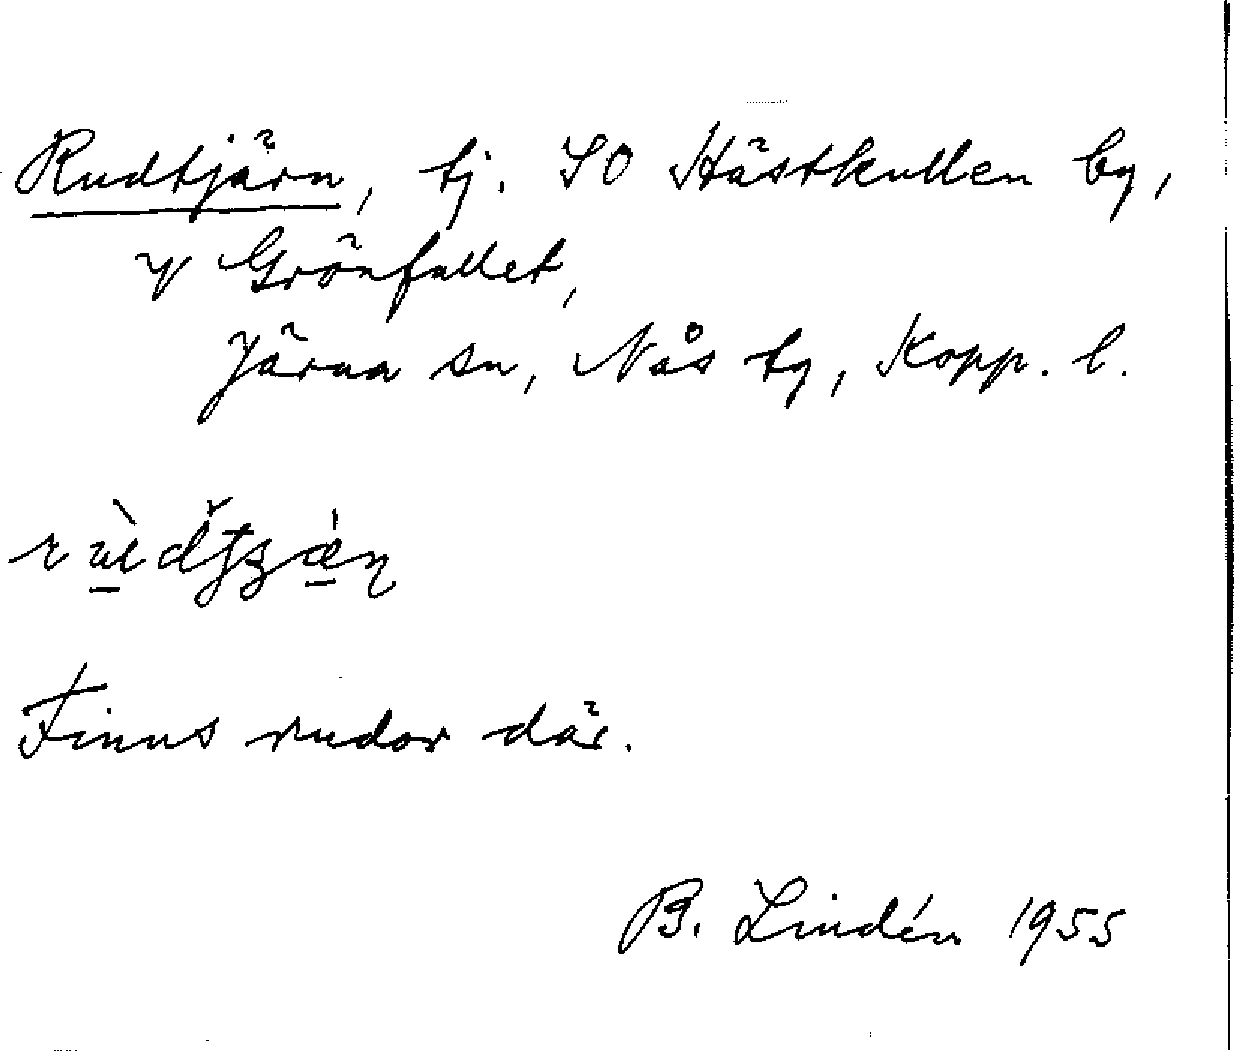 Rudtjärn, tj. SO Hästkullen by,
V Grönfallet,
Järna sn, Nås tg, Kopp. l.
Finns rudor där.
B. Lindén 1955